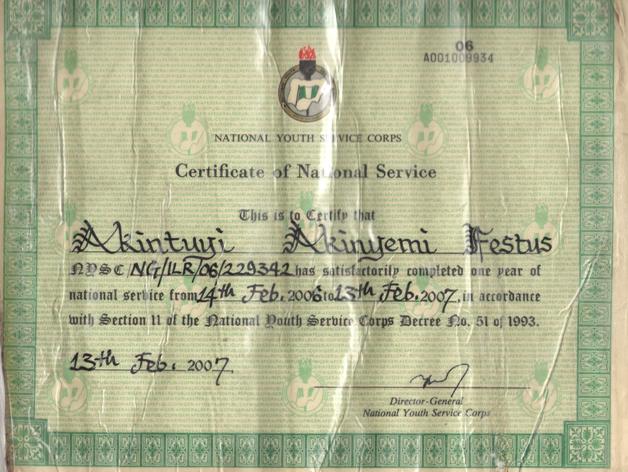 06
A001009934
NATIONAL YOUTH SERVICE CORPS
Certificate of National Service
This is to Certify that
Akintuyi Akinyemi Festus
NYSC NG/ILR/06/229342 has satisfactorily completed one year of
national service from 14th Feb. 2006 to 13th Feb. 2007, in accordance
with Section 11 of the National Youth Service Corps Decree No. 51 of 1993.
13th Feb. 2007.
Director-General
National Youth Service Corps